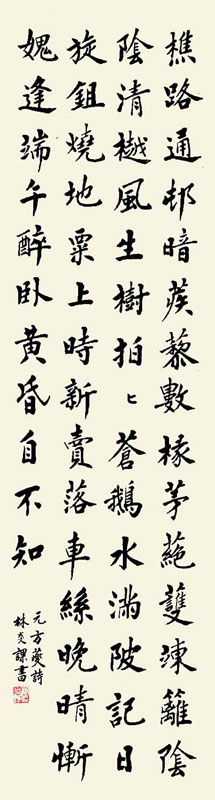 樵路通邨暗蒺藜數椽茅蕝護疎籬陰
陰清樾風生樹拍〻蒼鵝水滿陂記日
旋鉏燒地粟上時新賣落車絲晚晴慚
媿逢端午醉臥黃昏自不知
元方夔詩
林炎課書